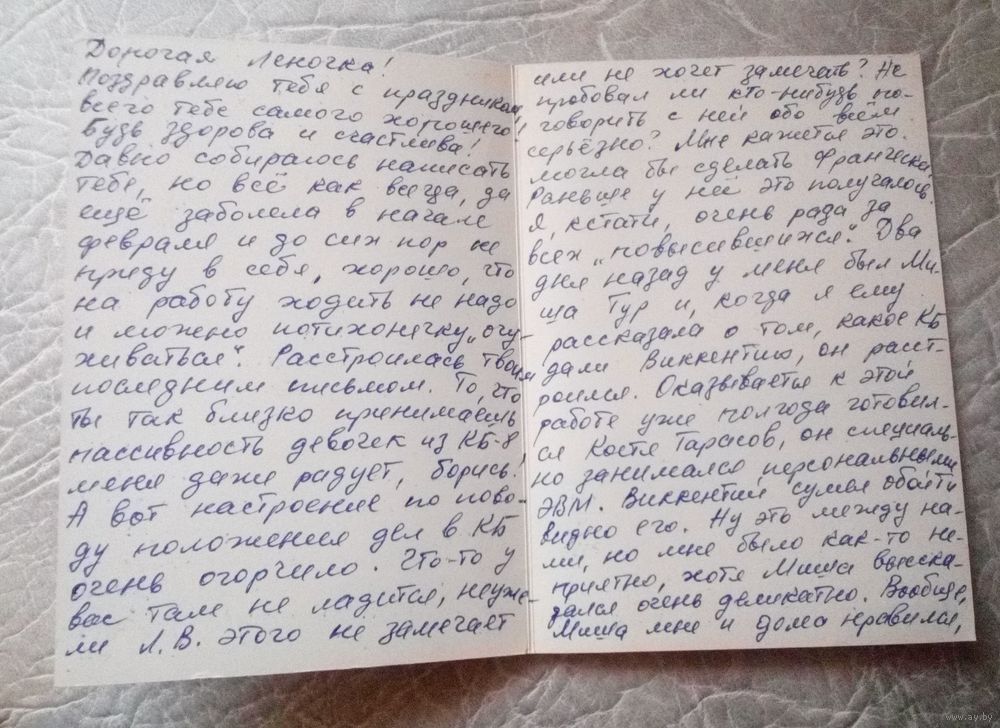 Дорогая Леночка!
Поздравляю тебя с праздником,
всего тебе самого хорошего,
Будь здорова и счастлива!
Давно собиралась написать
тебе, но всё как всегда, да
ещё заболела в начале
февраля и до сих пор не
приду в себя, хорошо, что
на работу ходить не надо
и можно потихонечку „очу-
хиваться". Расстроилась твоим
последним письмом. То, что
ты так близко принимаешь
пассивность девочек из КБ-8
меня даже радует, борись!
А вот настроение по пово-
ду положения дел в КБ
очень огорчило. Что-то у
вас там не ладится, неуже-
ли Л.В. этого не замечает
или не хочет замечать? Не
пробовал ли кто-нибудь по-
говорить с ней обо всём
серьёзно? Мне кажется это
могла бы сделать Франческа.
Раньше у неё это получалось.
Я, кстати, очень рада за
всех „повысившихся". Два
дня назад у меня был Ми-
ша Тур и, когда я ему
рассказала о том, какое КБ
дали Виккентию, он расст-
роился. Оказывается к этой
работе уже полгода готовил-
ся Костя Тарасов, он специаль-
но занимался персональными
ЭВМ. Виккентий сумел обойти
видно его. Ну это между на-
ми, но мне было как-то не-
приятно, хотя Миша выска-
зался очень деликатно. Вообще,
Миша мне и дома нравился,
www.ay.by